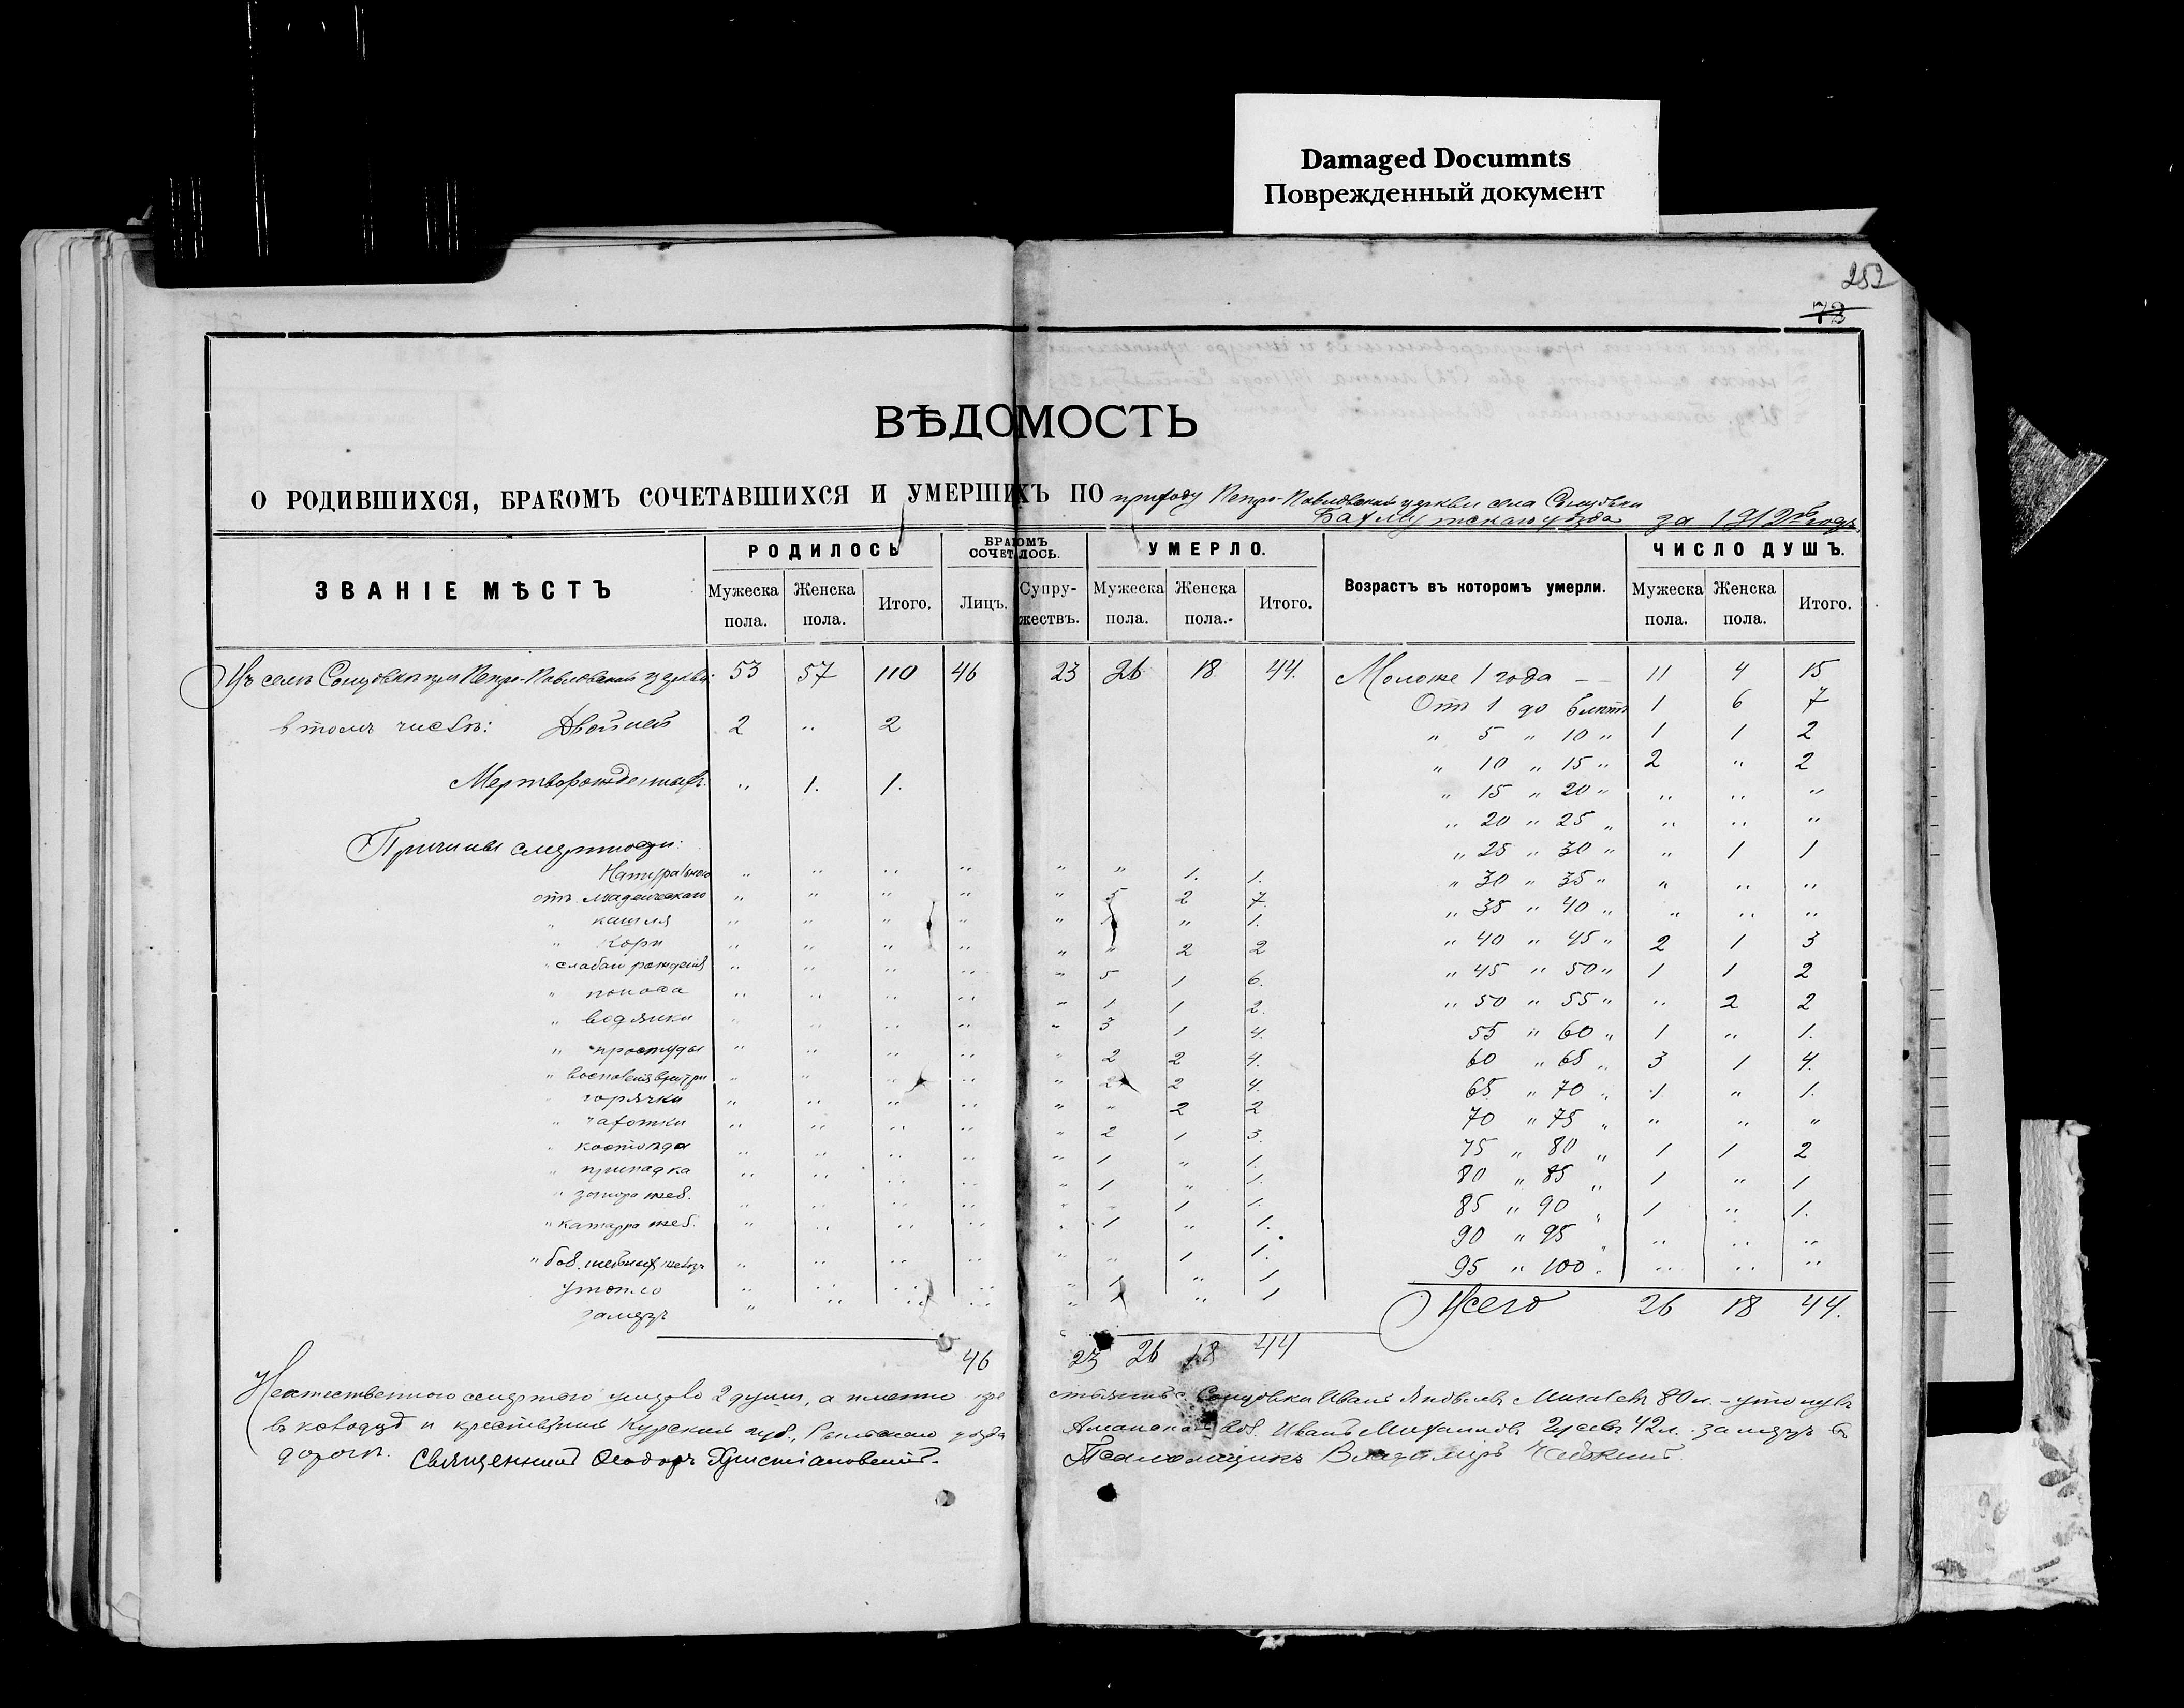 Damaged Documnts
Поврежденный документ
252
73
ВѢДОМОСТЬ
О РОДИВШИХСЯ, БРАКОМЪ СОЧЕТАВШИХСЯ И УМЕРШИХЪ ПО приходу Петро-Павловской церкви села Солнцовки
Бахмутскаго уѣзда за 1912й годъ
ЗВАНІЕ МѢСТЪ РОДИЛОСЬ БРАКОМЪ СОЧЕТАЛОСЬ. УМЕРЛО. Возрастъ въ которомъ умерли. ЧИСЛО ДУШЪ.
Мужеска пола. Женска пола. Итого. Лицъ. Супружествъ. Мужеска пола. Женска пола. Итого. Мужеска пола. Женска пола. Итого.
Въ селѣ Солнцовкѣ при Петро-Павловской церкви 53 57 110 46 23 26 18 44. Моложе 1 года — 11 4 15
Отъ 1 до 5 лѣтъ 1 6 7
в томъ числѣ: Двойней 2 " 2
" 5 " 10 " 1 1 2
" 10 " 15 " 2 " 2
Мертворожденныхъ. " 1. 1.
" 15 " 20 " " " "
" 20 " 25 " " " "
Причины смертности:
" 25 " 30 " " 1 1
Натуральною " " " " " " 1. 1.
" 30 " 35 " " " "
отъ младенческаго " " " " " 5 2 7.
" 35 " 40 " " " "
" кашля " " " " " 1 " 1.
" кори " " " " " " 2 2
" 40 " 45 " 2 1 3
" слабаго рожденія " " " " " 5 1 6.
" 45 " 50 " 1 1 2
" поноса " " " " " 1 1 2.
" 50 " 55 " " 2 2
" водянки " " " " " 3 1 4.
55 " 60 " 1 " 1.
" простуды " " " " " 2 2 4.
60 " 65 " 3 1 4.
" " " " " " 2 2 4.
65 " 70 " 1 " 1.
" горячки " " " " " " 2 2
70 " 75 " " " "
" чахотки " " " " " 2 1 3.
" костоѣда " " " " " 1 " 1.
75 " 80 " 1 1 2
" припадка " " " " " 1 " 1.
80 " 85 " 1 " 1
" запора жел. " " " " " " 1 1.
85 " 90 " 1 " 1.
" катарра жел. " " " " " 1 " 1.
90 " 95 " " " "
" " " " " " " 1 1.
95 " 100 " " " "
утопло " " " " " 1 " 1
замерзъ " " " " " 1 " 1
Всего 26 18 44.
46 23 26 18 44
Неестественною смертью умерло 2 души, а именно крестьянинъ с. Солнцовки Иванъ Яковлевъ 80 л. – утонулъ
въ колодцѣ и крестьянинъ Курской губ., Рыльскаго уѣзда вол. Иванъ Михайловъ Гусевъ 42 л. замерзъ въ
дорогѣ. Священникъ Ѳеодоръ Христіановскій. Псаломщикъ Владиміръ